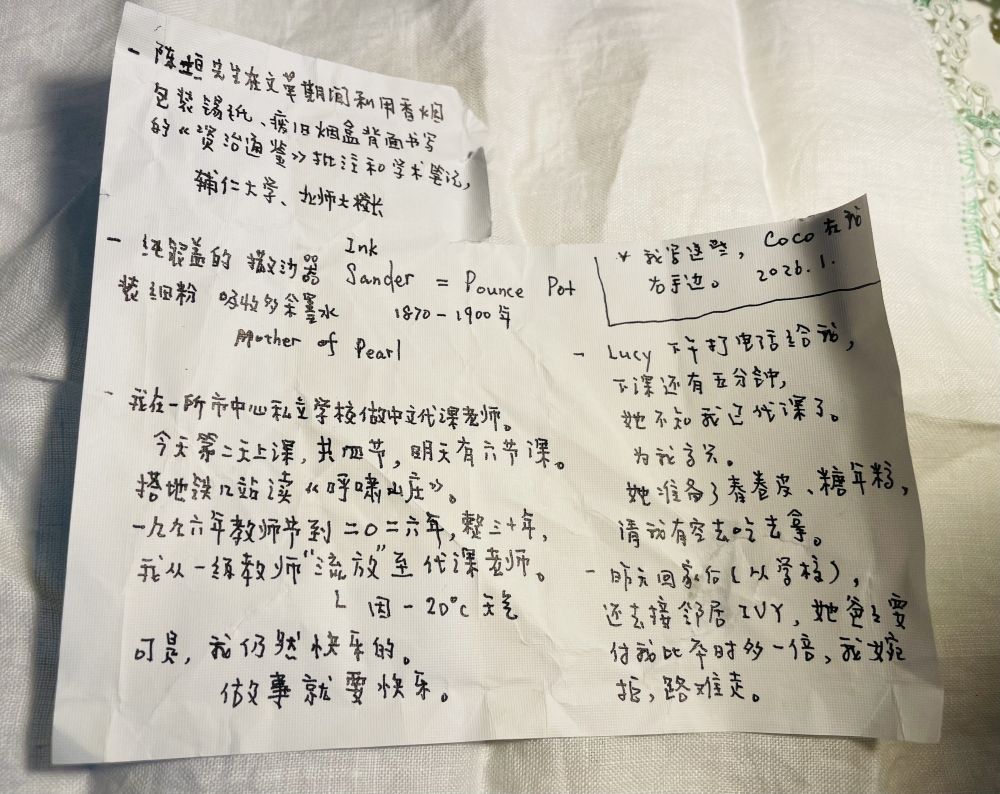 - 陈垣先生在文革期间利用香烟
包装锡纸、废旧烟盒背面书写
的《资治通鉴》批注和学术笔记,
辅仁大学、北师大校长
- 纯银盖的 撒沙器 Ink Sander = Pounce Pot
装细粉 吸收多余墨水 1870-1900年
Mother of Pearl
- 我在一所市中心私立学校做中文代课老师。
今天第二天上课,共四节,明天有六节课。
搭地铁几站读《呼啸山庄》。
一九九六年教师节到二〇二六年,整三十年,
我从一线教师"流放"至代课老师。
因-20°C天气
可是,我仍然快乐的。
做事就要快乐。
* 我写这些, Coco在我
右手边。 2026.1.
- Lucy 下午打电话给我,
下课还有五分钟,
她不知我已代课了。
为我高兴。
她准备了春卷皮、糖年糕,
请我有空去吃去拿。
- 昨天回家后(从学校),
还去接邻居IVY,她爸爸要
付我比平时多一倍,我婉
拒,路难走。